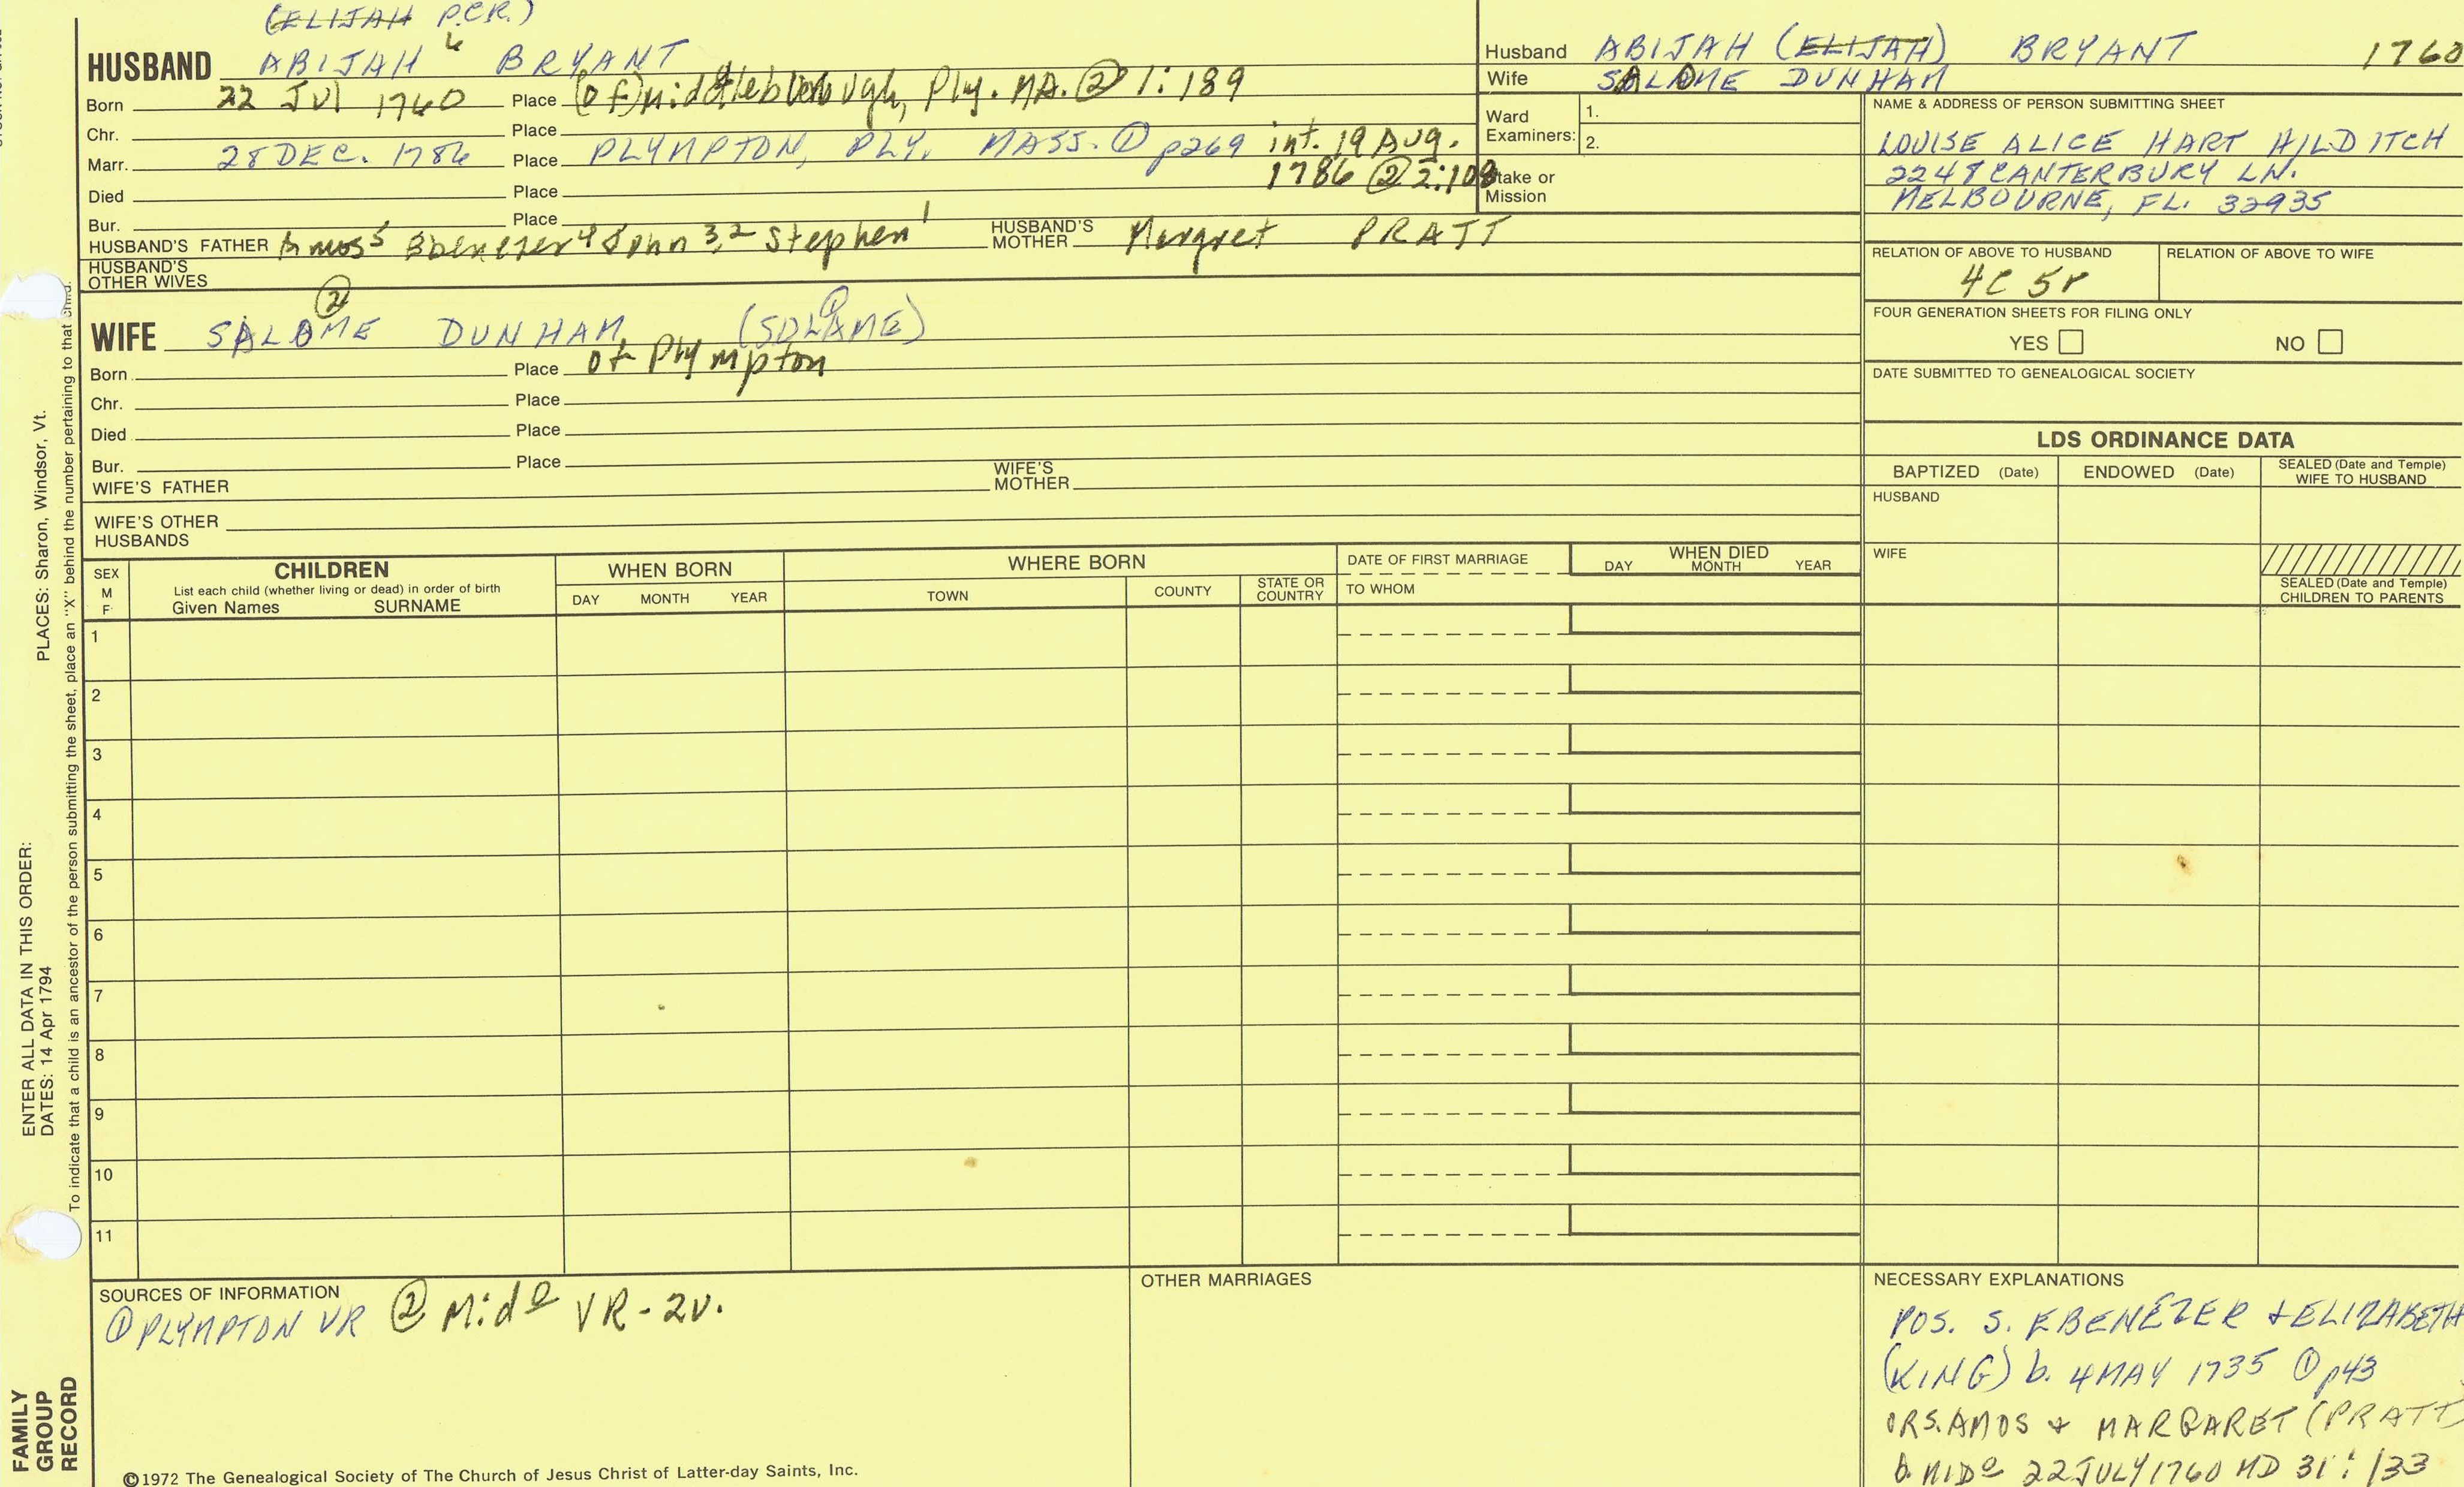 (ELIJAH P.C.R.)
HUSBAND ABIJAH 6 BRYANT
Born 22 Jul 1760 Place (of) Middleborough, Ply. MA. ② 1:189
Chr. Place
Marr. 28 DEC. 1786 Place PLYMPTON, PLY. MASS. ① p269 int. 19 Aug.
1786 ② 2:108
Died Place
Bur. Place
HUSBAND'S FATHER Amos5 Ebenezer4 John3,2 Stephen1 HUSBAND'S MOTHER Margret PRATT
HUSBAND'S OTHER WIVES
②
WIFE SALOME DUNHAM (SOLAME) ①
Born Place of Plympton
Chr. Place
Died Place
Bur. Place
WIFE'S FATHER WIFE'S MOTHER
WIFE'S OTHER HUSBANDS
Husband ABIJAH (ELIJAH) BRYANT 1760
Wife SALOME DUNHAM
Ward Examiners: 1.
2.
Stake or Mission
NAME & ADDRESS OF PERSON SUBMITTING SHEET
LOUISE ALICE HART HILDITCH
2248 CANTERBURY LN.
MELBOURNE, FL. 32935
RELATION OF ABOVE TO HUSBAND RELATION OF ABOVE TO WIFE
4C 5r
FOUR GENERATION SHEETS FOR FILING ONLY
YES NO
DATE SUBMITTED TO GENEALOGICAL SOCIETY
LDS ORDINANCE DATA
BAPTIZED (Date) ENDOWED (Date) SEALED (Date and Temple) WIFE TO HUSBAND
HUSBAND
WIFE
SEALED (Date and Temple) CHILDREN TO PARENTS
SEX M F
CHILDREN
List each child (whether living or dead) in order of birth
Given Names SURNAME
WHEN BORN
DAY MONTH YEAR
WHERE BORN
TOWN COUNTY STATE OR COUNTRY
DATE OF FIRST MARRIAGE
TO WHOM
WHEN DIED
DAY MONTH YEAR
1
2
3
4
5
6
7
8
9
10
11
SOURCES OF INFORMATION
① PLYMPTON VR ② Mido VR-2v.
OTHER MARRIAGES
NECESSARY EXPLANATIONS
POS. S. EBENEZER + ELIZABETH
(KING) b. 4 MAY 1735 ① p43
OR S. AMOS + MARGARET (PRATT)
b. MIDo 22 JULY 1760 MD 31:133
©1972 The Genealogical Society of The Church of Jesus Christ of Latter-day Saints, Inc.
FAMILY GROUP RECORD
ENTER ALL DATA IN THIS ORDER:
DATES: 14 Apr 1794 PLACES: Sharon, Windsor, Vt.
To indicate that a child is an ancestor of the person submitting the sheet, place an "X" behind the number pertaining to that child.